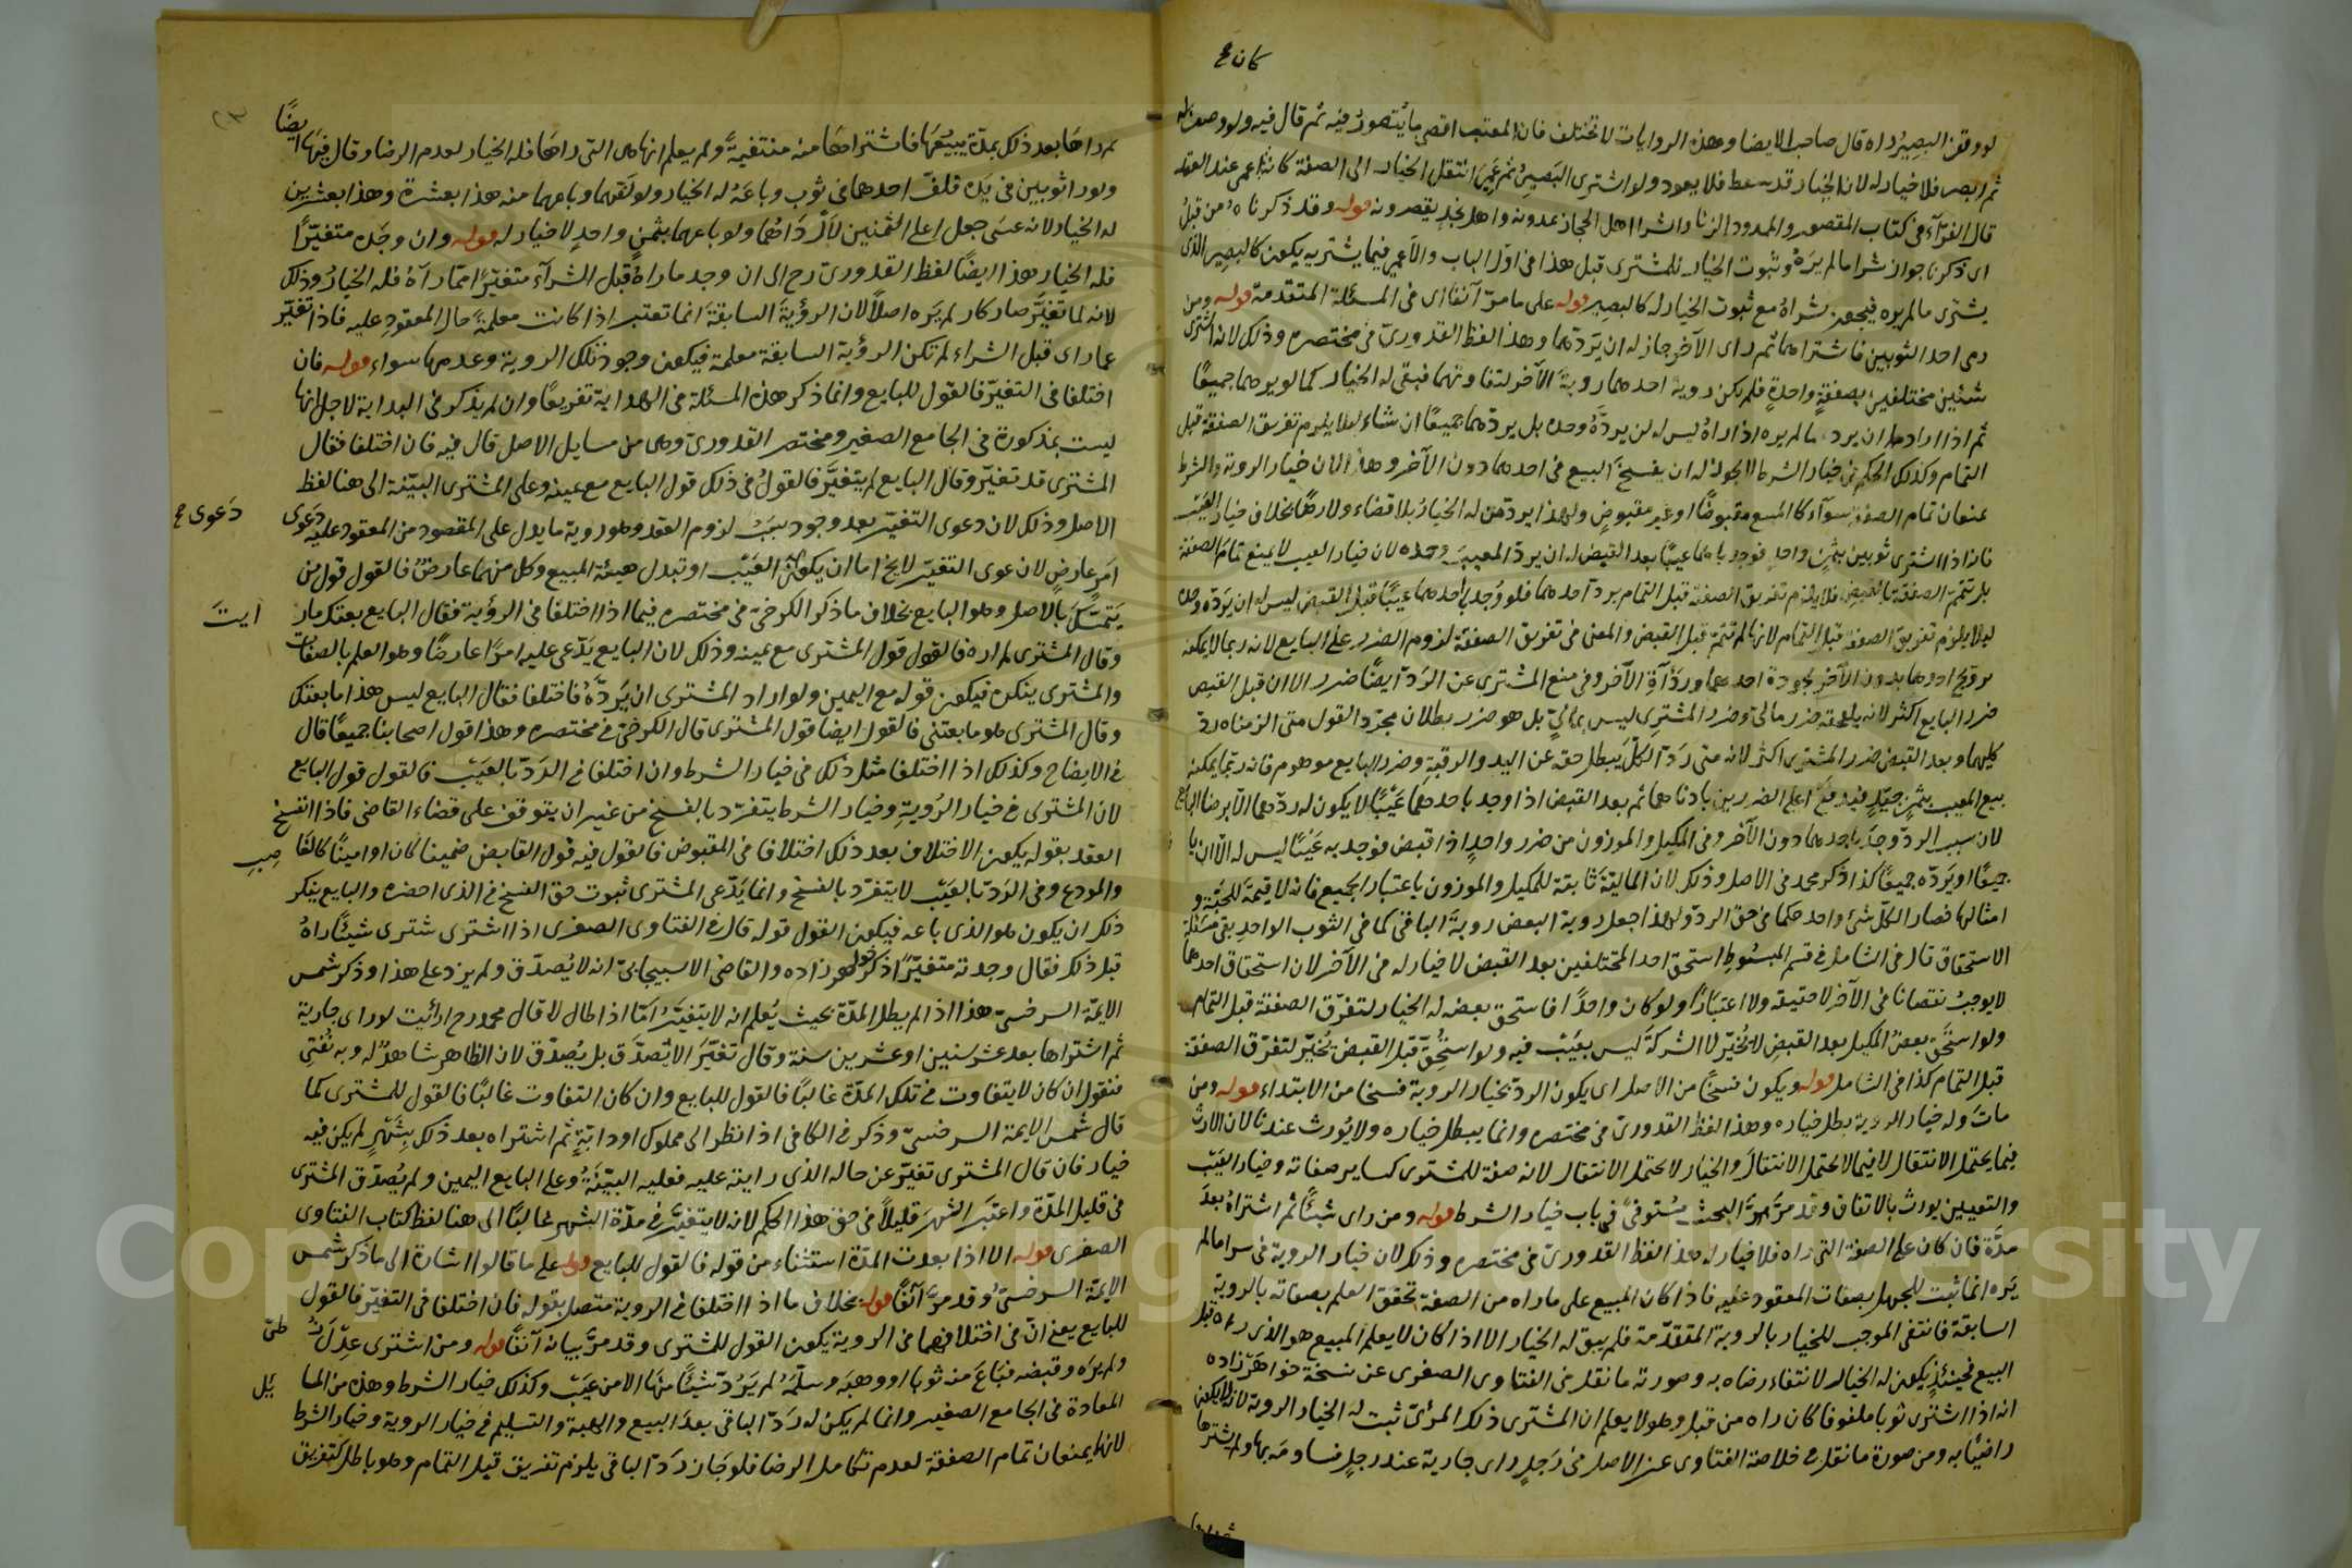 كان ع
لو وقف البصير راه قال صاحب الايضا وهذه الروايات لا تختلف فان المعتبر اقصى ما يتصور فيه ثم قال فيه ولو وصف له
ثم ابصر فلا خيار له لان الخيار قد سقط فلا يعود ولو اشترى البصير ثم عمى انتقل الخيار الى الصفة كانه اعمى عند العقد
قال الفرّآء فى كتاب المقصور والممدود الزنا والشرا اهل الحجاز يمدونه واهل نجد يقصرونه قوله وقد ذكرناه من قبل
اى ذكرنا جواز شرا ما لم يره وثبوت الخيار للمشترى قبل هذا فى اول الباب والاعمى فيما يشتريه يكون كالبصير الذى
يشترى ما لم يره فيجوز شراه مع ثبوت الخيار له كالبصير قوله على ما مرّ آنفا اى فى المسئلة المتقدمة قوله ومن
رى احد الثوبين فاشتراهما ثم راى الآخر جاز له ان يردّهما وهذا لفظ القدورىّ فى مختصره وذلك لانه اشترى
شئين مختلفين بصفقةٍ واحدةٍ فلم يكن روية احدهما روية الآخر لتفاوتهما فبقى له الخيار كما لو يرهما جميعًا
ثم اذا اراد ان يرد ما لم يره اذا راه ليس له ان يردّه وحده بل يردّهما جميعًا ان شاء لئلا يلزم تفريق الصفقة قبل
التمام وكذلك الحكم فى خيار الشرط لا يجوز له ان يفسخ البيع فى احدهما دون الآخر وهذا لان خيار الروية والشرط
يمنعان تمام الصفقة سوآء كان المبيع مقبوضًا او غير مقبوضٍ ولهذا يردّ من له الخيار بلا قضاء ولا رضًا بخلاف خيار العيب
فانه اذا اشترى ثوبين بثمنٍ واحدٍ فوجد باحدهما عيبًا بعد القبض له ان يردّ المعيب وحده لان خيار العيب لا يمنع تمام الصفقة
بل تتمّ الصفقة بالقبض فلا يلزم تفريق الصفقة قبل التمام برد احدهما فلو وُجد باحدهما عيبًا قبل القبض ليس له ان يردّه وحده
ليلا يلزم تفريق الصفقة قبل التمام لانها لم تتم قبل القبض والمعنى فى تفريق الصفقة لزوم الضرر على البايع لانه ربما لا يمكنه
ترويج احدهما بدون الآخر لجودة احدهما وردآءة الآخر وفى منع المشترى عن الردّ ايضًا ضرر الا ان قبل القبض
ضرر البايع اكثر لانه يلحقه ضرر مالىّ وضرر المشترى ليس بمالىّ بل هو ضرر بطلان مجرّد القول متى الزمناه ردّ
كليهما وبعد القبض ضرر المشترى اكثر لانه متى ردّ الكل يبطل حقه عن اليد والرقبة وضرر البايع موهوم فانه ربّما يمكنه
بيع المعيب بثمنٍ جيّدٍ فيدفع اعلى الضررين بادناهما ثم بعد القبض اذا وجد باحدهما عيبًا لا يكون له ردّهما الّا برضا البايع
لان سبب الردّ وجد باحدهما دون الآخر وفى المكيل والموزون من ضرر واحدٍ اذا قبض فوجد به عيبًا ليس له الّا ان يا
جميعًا او يردّه جميعًا كذا ذكر محمد فى الاصل وذلك لان المالية ثابتة للمكيل والموزون باعتبار الجميع فانه لا قيمة للحبّة و
امثالها فصار الكلّ شئ واحد حكما فى حق الردّ ولهذا جعل روية البعض روية الباقى كما فى الثوب الواحد بقى مسئلة
الاستحقاق قال فى الشامل فى قسم المبسوط استحق احد المختلفين بعد القبض لا خيار له فى الآخر لان استحقاق احدهما
لا يوجب نقصانا فى الآخر لا حقيقة ولا اعتبارًا ولو كان واحدًا فاستحق بعضه له الخيار لتفرّق الصفقة قبل التمام
ولو استحق بعض المكيل بعد القبض لا يُخيّر لا الشركة ليس بعيب فيه ولو استحقّ قبل القبض يُخيّر لتفرّق الصفقة
قبل التمام كذا فى الشامل قوله ويكون فسخًا من الاصل اى يكون الردّ بخيار الروية فسخا من الابتداء قوله ومن
مات وله خيار الروية بطل خياره وهذا لفظ القدورىّ فى مختصره وانما يبطل خياره ولا يُورث عندنا لان الارث
فيما يحتمل الانتقال لا فيما لا يحتمل الانتقال والخيار لا يحتمل الانتقال لانه صفة للمشترى كساير صفاته وخيار العيب
والتعيين يورث بالاتفاق وقد مرّ البحث مُستوفىً فى باب خيار الشرط قوله ومن راى شيئًا ثم اشتراه بعد
مدّة فان كان على الصفة التى راه فلا خيار له هذا لفظ القدورىّ فى مختصره وذلك لان خيار الروية فى شرا ما لم
يره انما ثبت للجهل بصفات المعقود عليه فاذا كان المبيع على ما راه من الصفة تحقق العلم بصفاته بالروية
السابقة فانتفى الموجب للخيار بالروية المتقدّمة فلم يبق له الخيار الا اذا كان لا يعلم المبيع هو الذى راه قبل
البيع فحينئذٍ يكون له الخيار لانتفاء رضاه به وصورته ما نقل فى الفتاوى الصغرى عن نسخة خواهر زاده
انه اذا اشترى ثوبا ملفوفا كان راه من قبل وهو لا يعلم ان المشترى ذلك المرئىّ ثبت له الخيار الروية لانه لا يكون
راضيًا به ومن صورة ما نقل فى خلاصة الفتاوى عن الاصل فى رَجلٍ راى جارية عند رجلٍ فساومه بها ولم يشترها
ثم راها بعد ذلك بمدّة يبيعُهَا فاشتراها منه منتقبةً ولم يعلم انها هى التى راهَا فله الخيار لعدم الرضا وقال فيهَا ايضًا
ولو را ثوبين فى يَده فلفّ احدهما فى ثوب وباعَهُ له الخيار ولو لفّهما وباعهما منه هذا بعشرة وهذا بعشرين
له الخيار لانه عسَى جعل اعلى الثمنين لأردَاهُما ولو باعهما بثمنٍ واحدٍ لا خيار له قوله وان وجَده متغيّرًا
فله الخيار هذا ايضًا لفظ القدورىّ رح اى ان وجد ما راه قبل الشرآء متغيّرًا عمّا رآهُ فله الخيارُ وذلك
لانه لما تغيَّر صار كان لم يَره اصلًا لان الرؤيةَ السابقةَ انما تعتبر اذا كانت معلمةً حال المعقود عليه فاذا تغيّر
عما راى قبل الشراء لم تكن الرؤية السابقة معلمة فيكون وجود تلك الروية وعدمها سواء قوله فان
اختلفا فى التغيّر فالقول للبايع وانما ذكر هذه المسئلة فى الهداية تفريعًا وان لم يذكر فى البداية لاجل انها
ليست بمذكورة فى الجامع الصغير ومختصر القدورىّ وهى من مسايل الاصل قال فيه فان اختلفا فقال
المشترى قد تغيّر وقال البايع لم يتغيَّر فالقولُ فى ذلك قول البايع مع يمينه وعلى المشترى البيّنة الى هنا لفظ
الاصل وذلك لان دعوى التغيّر بعد وجود سبب لزوم العقد وهو روية ما يدل على المقصود من المعقود عليه دَعوى
دَعوى ع
امرٍ عارضٍ لان عوى التغيّر لا يخ اما ان يكون العَيْب او تبدل هيئة المبيع وكل منهما عارضٌ فالقول قول من
يَتَمَسَّكَ بالاصل وهو البايع بخلاف ما ذكر الكرخىّ فى مختصره فيما اذا اختلفا فى الرؤية فقال البايع بعتك مار
ايتَ
وقال المشترى لم اره فالقول قول المشترى مع يمينه وذلك لان البايع يَدّعى عليه امرًا عارضًا وهو العلم بالصفات
والمشترى ينكره فيكون قوله مع اليمين ولو اراد المشترى ان يَردّهُ فاختلفا فقال البايع ليس هذا ما بعتك
وقال المشترى هو ما بعتنى فالقول ايضا قول المشترى قال الكرخىّ فى مختصره وهذا قول اصحابنا جميعًا قال
فى الايضاح وكذلك اذا اختلفا مثل ذلك فى خيار الشرط وان اختلفا فى الردّ بالعيب فالقول قول البايع
لان المشترى فى خيار الرُوية وخيار الشرط يتفرّد بالفسخ من غير ان يتوقف على قضاء القاضى فاذا انفسخ
العقد بقوله يكون الاختلاف بعد ذلك اختلافا فى المقبوض فالقول فيه قول القابض ضمينا كان او امينًا كالغا
صِب
والمودع وفى الردّ بالعيب لا يتفرّد بالفسخ وانما يَدّعى المشترى ثبوت حق الفسخ فى الذى احضره والبايع ينكر
ذكر ان يكون هو الذى باعه فيكون القول قوله قال فى الفتاوى الصغرى اذا اشترى شترى شيئًا راهُ
قبل ذلك فقال وجدته متغيّرًا ذكر خواهر زاده والقاضى الاسبيجابىّ انه لا يُصدّق ولم يزد على هذا وذكر شمس
الايمّة السرخسىّ هذا اذا لم يطل المدّة بحيث يُعلم انه لا يتغيّر امّا اذا طال لا قال محمد رح ارائيت لو راى جارية
ثم اشتراها بعد عشر سنين او عشرين سنة وقال تغيّرَ الا يُصدّق بل يُصدّق لان الظاهر شاهدٌ له وبه نُفتى
فنقول ان كان لا يتفاوت فى تلك المدّة غالبًا فالقول للبايع وان كان التفاوت غالبًا فالقول للمشترى كما
قال شمس الايمة السرخسىّ وذكر فى الكافى اذا نظر الى مملوك او دابّةٍ ثم اشتراه بعد ذلك بِشَهْرٍ لم يكن فيه
خيار فان قال المشترى تغيّر عن حاله الذى رايته عليه فعليه البيّنَةُ وعلى البايع اليمين ولم يُصدّق المشترى
فى قليل المدّة واعتبَر الشهرَ قليلًا فى حق هذا الحكم لانه لا يتغيّر فى مدّة الشهر غالبًا الى هنا لفظ كتاب الفتاوى
الصغرى قوله الا اذا بعدت المدّة استثناء من قوله فالقول للبايع قوله على ما قالوا اشارة الى ما ذكر شمس
الايمّة السرخسىّ وقد مرّ آنفًا قوله بخلاف ما اذا اختلفا فى الروية متصل بقوله فان اختلفا فى التغيّر فالقول
للبايع يعنى انّ فى اختلافهما فى الروية يكون القول للمشترى وقد مرّ بيانه آنفًا قوله ومن اشترى عِدْلَ
طىّ
ولم يره وقبضه فبَاعَ منه ثوبا او وهبَه وسلّمَهُ لم يَرُدّ شيئًا منها الا من عيَب وكذلك خيار الشرط وهذه من المسا
ئل
المعادة فى الجامع الصغير وانما لم يكن له رَدّ الباقى بعدَ البيع والهبة والتسليم فى خيار الروية وخيار الشرط
لانهما يمنعان تمام الصفقة لعدم تكامل الرضا فلو جَاز رَدّ الباقى يلزم تفريق قبل التمام وهو باطل كتفريق
Copyright © King Saud University